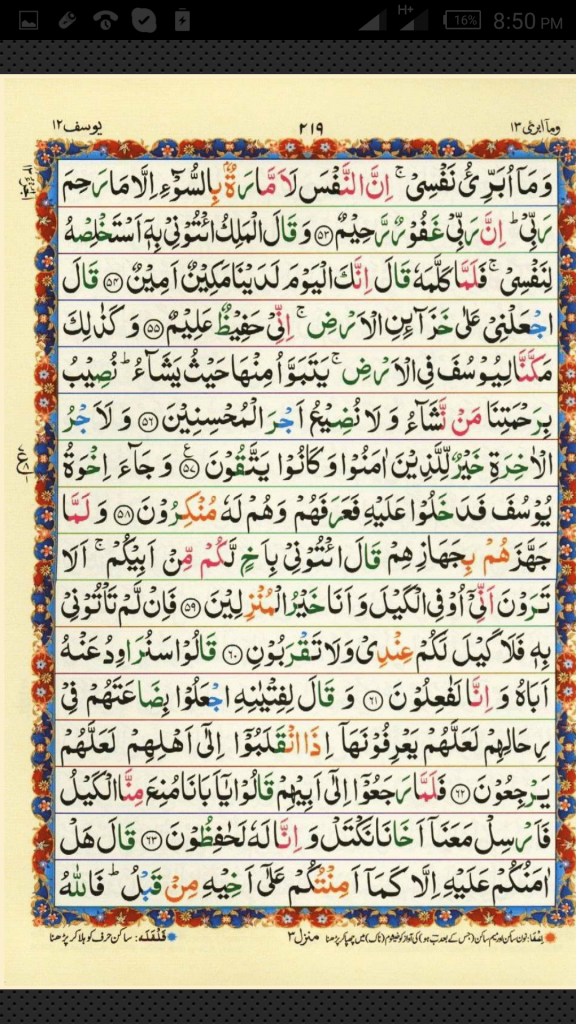 H+ 16% 8:50 PM
یوسف ۱۲ ۲۱۹ ومآ ابرئ ۱۳
وَمَاۤ اُبَرِّئُ نَفۡسِىۡ‌ۚ اِنَّ النَّفۡسَ لَاَمَّارَةٌۢ بِالسُّوۡٓءِ اِلَّا مَا رَحِمَ
رَبِّىۡ‌ؕ اِنَّ رَبِّىۡ غَفُوۡرٌ رَّحِيۡمٌ ﴿۵۳﴾ وَقَالَ الۡمَلِكُ ائۡتُوۡنِىۡ بِهٖۤ اَسۡتَخۡلِصۡهُ
لِنَفۡسِىۡ‌ۚ فَلَمَّا كَلَّمَهٗ قَالَ اِنَّكَ الۡيَوۡمَ لَدَيۡنَا مَكِيۡنٌ اَمِيۡنٌ ﴿۵۴﴾ قَالَ
اجۡعَلۡنِىۡ عَلٰى خَزَآٮِٕنِ الۡاَرۡضِ‌ۚ اِنِّىۡ حَفِيۡظٌ عَلِيۡمٌ ﴿۵۵﴾ وَكَذٰلِكَ
مَكَّنَّا لِيُوۡسُفَ فِى الۡاَرۡضِ‌ۚ يَتَبَوَّاُ مِنۡهَا حَيۡثُ يَشَآءُ‌ؕ نُصِيۡبُ
بِرَحۡمَتِنَا مَنۡ نَّشَآءُ وَلَا نُضِيۡعُ اَجۡرَ الۡمُحۡسِنِيۡنَ ﴿۵۶﴾ وَلَاَجۡرُ
الۡاٰخِرَةِ خَيۡرٌ لِّلَّذِيۡنَ اٰمَنُوۡا وَكَانُوۡا يَتَّقُوۡنَ ﴿۵۷﴾ وَجَآءَ اِخۡوَةُ
يُوۡسُفَ فَدَخَلُوۡا عَلَيۡهِ فَعَرَفَهُمۡ وَهُمۡ لَهٗ مُنۡكِرُوۡنَ ﴿۵۸﴾ وَلَمَّا
جَهَّزَهُمۡ بِجَهَازِهِمۡ قَالَ ائۡتُوۡنِىۡ بِاَخٍ لَّكُمۡ مِّنۡ اَبِيۡكُمۡ‌ۚ اَلَا
تَرَوۡنَ اَنِّىۡۤ اُوۡفِى الۡكَيۡلَ وَاَنَا خَيۡرُ الۡمُنۡزِلِيۡنَ ﴿۵۹﴾ فَاِنۡ لَّمۡ تَاۡتُوۡنِىۡ
بِهٖ فَلَا كَيۡلَ لَكُمۡ عِنۡدِىۡ وَلَا تَقۡرَبُوۡنِ ﴿۶۰﴾ قَالُوۡا سَنُرَاوِدُ عَنۡهُ
اَبَاهُ وَاِنَّا لَفٰعِلُوۡنَ ﴿۶۱﴾ وَقَالَ لِفِتۡيٰنِهِ اجۡعَلُوۡا بِضَاعَتَهُمۡ فِىۡ
رِحَالِهِمۡ لَعَلَّهُمۡ يَعۡرِفُوۡنَهَاۤ اِذَا انْقَلَبُوۡۤا اِلٰٓى اَهۡلِهِمۡ لَعَلَّهُمۡ
يَرۡجِعُوۡنَ ﴿۶۲﴾ فَلَمَّا رَجَعُوۡۤا اِلٰٓى اَبِيۡهِمۡ قَالُوۡا يٰۤاَبَانَا مُنِعَ مِنَّا الۡكَيۡلُ
فَاَرۡسِلۡ مَعَنَاۤ اَخَانَا نَكۡتَلۡ وَاِنَّا لَهٗ لَحٰفِظُوۡنَ ﴿۶۳﴾ قَالَ هَلۡ
اٰمَنُكُمۡ عَلَيۡهِ اِلَّا كَمَاۤ اَمِنۡتُكُمۡ عَلٰٓى اَخِيۡهِ مِنۡ قَبۡلُ‌ؕ فَاللّٰهُ
منزل ۳
قلقلہ: ساکن حرف کو ہلا کر پڑھنا